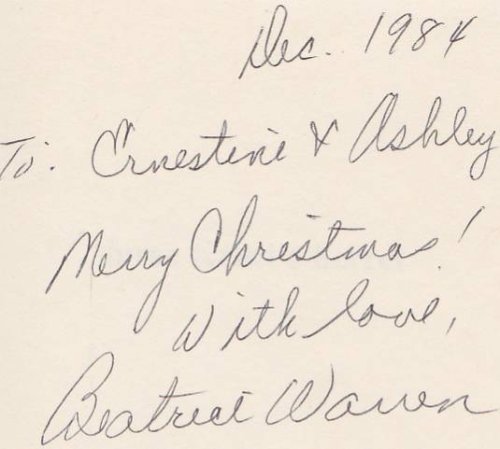 Dec. 1984
To: Ernestine & Ashley
Merry Christmas!
With love,
Beatrice Warren